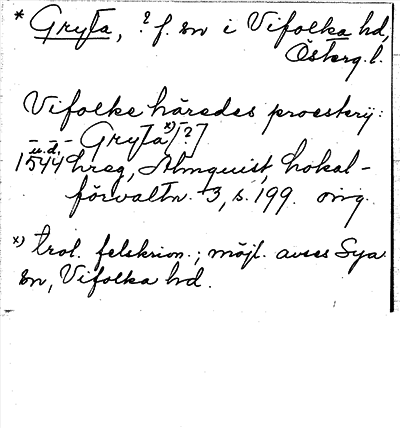 * Gryta, ? f. sn i Vifolka hd,
Österg. l.
Vifolke häredes proesterij:
Gryta x) [?]
u.d.
1544 hreg, Almquist, Lokal-
förvaltn. 3, s. 199. orig.
x) trol. felskrivn.; möjl. avses Sya
sn, Vifolka hd.